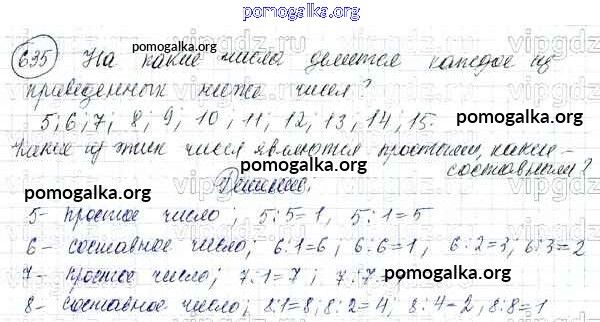 pomogalka.org
635 На какие числа делится каждое из
pomogalka.org
приведенных ниже чисел?
5; 6; 7; 8; 9; 10, 11, 12, 13, 14, 15. pomogalka.org
Какие из этих чисел являются простыми, какие -
pomogalka.org составными?
pomogalka.org Решение.
5 - простое число; 5:5=1, 5:1=5
6 - составное число; 6:1=6; 6:6=1; 6:2=3; 6:3=2
7 - простое число; 7:1=7; 7:7 pomogalka.org
8 - составное число; 8:1=8; 8:2=4; 8:4=2, 8:8=1